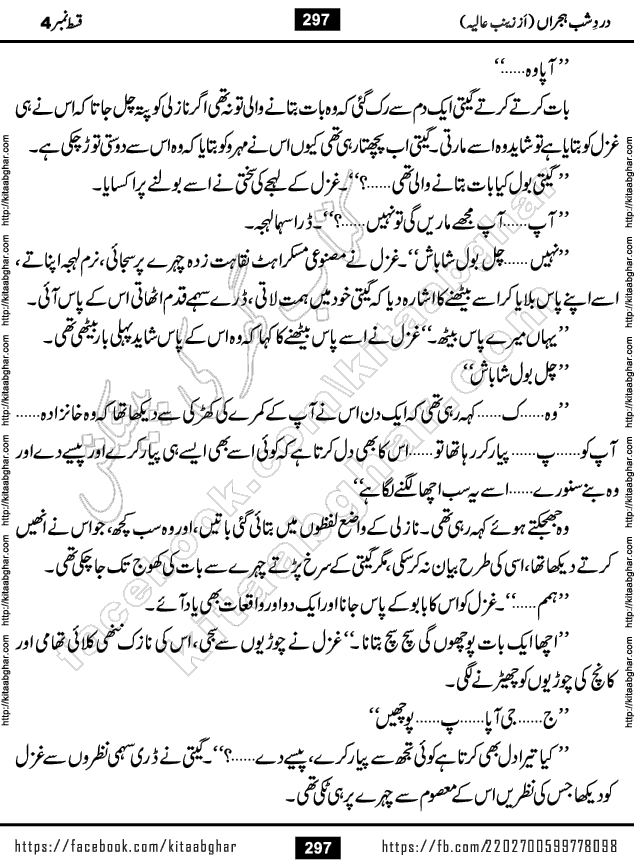 دردِ شب ہجراں (از زینب عالیہ) 297 قسط نمبر 4
’’آپا وہ……‘‘
بات کرتے کرتے گیتی ایک دم سے رک گئی کہ وہ بات بتانے والی تو نہ تھی اگر نازلی کو پتہ چل جاتا کہ اس نے ہی
غزل کو بتایا ہے تو شاید وہ اسے مارتی۔ گیتی اب پچھتا رہی تھی کیوں اس نے مہرو کو بتایا کہ وہ اس سے دوستی توڑ چکی ہے۔
’’گیتی بول کیا بات بتانے والی تھی……؟‘‘۔ غزل کے لہجے کی سختی نے اسے بولنے پر اکسایا۔
’’آپ……آپ مجھے ماریں گی تو نہیں……؟‘‘۔ ڈرا سہا لہجہ۔
’’نہیں……چل بول شاباش‘‘۔ غزل نے مصنوعی مسکراہٹ نقاہت زدہ چہرے پر سجائی، نرم لہجہ اپناتے،
اسے اپنے پاس بلایا کر اسے بیٹھنے کا اشارہ دیا کہ گیتی خود میں ہمت لاتی، ڈرے سہمے قدم اٹھاتی اس کے پاس آئی۔
’’یہاں میرے پاس بیٹھ۔‘‘ غزل نے اسے پاس بیٹھنے کا کہا کہ وہ اس کے پاس شاید پہلی بار بیٹھی تھی۔
’’چل بول شاباش‘‘
’’وہ……ک……کہہ رہی تھی کہ ایک دن اس نے آپ کے کمرے کی کھڑکی سے دیکھا تھا کہ وہ خانزادہ……
آپ کو……پ……پیار کر رہا تھا تو……اس کا بھی دل کرتا ہے کہ کوئی اسے بھی ایسے ہی پیار کرے اور پیسے دے اور
وہ بنے سنورے……اسے یہ سب اچھا لگنے لگا ہے‘‘
وہ جھجکتے ہوئے کہہ رہی تھی۔ نازلی کے واضع لفظوں میں بتائی گئی باتیں، اور وہ سب کچھ، جو اس نے انھیں
کرتے دیکھا تھا، اسی کی طرح بیان نہ کر سکی، مگر گیتی کے سرخ پڑتے چہرے سے بات کی کھوج تک جا چکی تھی۔
’’ہمم……‘‘۔ غزل کو اس کا بابو کے پاس جانا اور ایک دو اور واقعات بھی یاد آئے۔
’’اچھا ایک بات پوچھوں گی سچ سچ بتانا۔‘‘ غزل نے چوڑیوں سے سجی، اس کی نازک ننھی کلائی تھامی اور
کانچ کی چوڑیوں کو چھیڑنے لگی۔
’’ج……جی آپا……پ……پوچھیں‘‘
’’کیا تیرا دل بھی کرتا ہے کوئی تجھ سے پیار کرے، پیسے دے……؟‘‘۔ گیتی نے ڈری سہمی نظروں سے غزل
کو دیکھا جس کی نظریں اس کے معصوم سے چہرے پر ہی ٹکی تھی۔
https://facebook.com/kitaabghar 297 https://fb.com/2202700599778098
http://kitaabghar.com http://kitaabghar.com http://kitaabghar.com http://kitaabghar.com http://kitaabghar.com http://kitaabghar.com
http://kitaabghar.com http://kitaabghar.com http://kitaabghar.com http://kitaabghar.com http://kitaabghar.com http://kitaabghar.com
کتاب گھر کی پیشکش
facebook.com/kitaabghar
kitaabghar.com